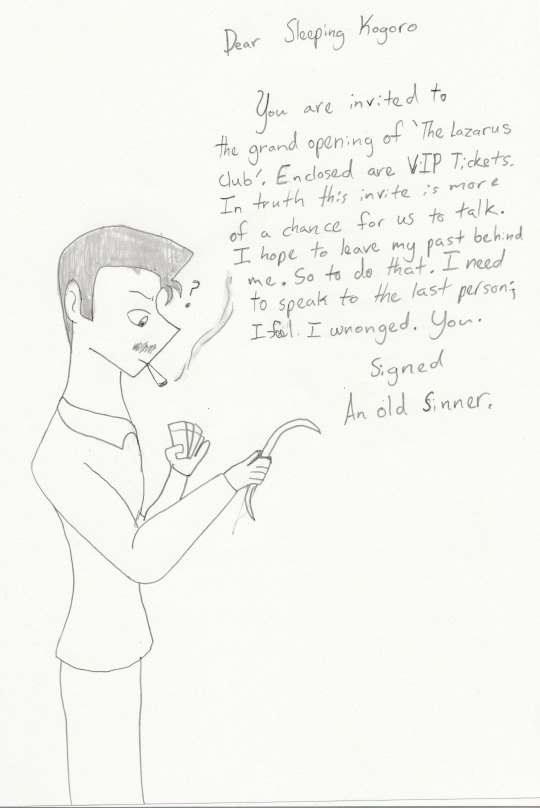 Dear Sleeping Kogoro
You are invited to
the grand opening of 'The Lazarus
Club'. Enclosed are VIP Tickets.
In truth this invite is more
of a chance for us to talk.
I hope to leave my past behind
me. So to do that. I need
to speak to the last person;
I feel I wronged. You.
Signed
An old Sinner.
?